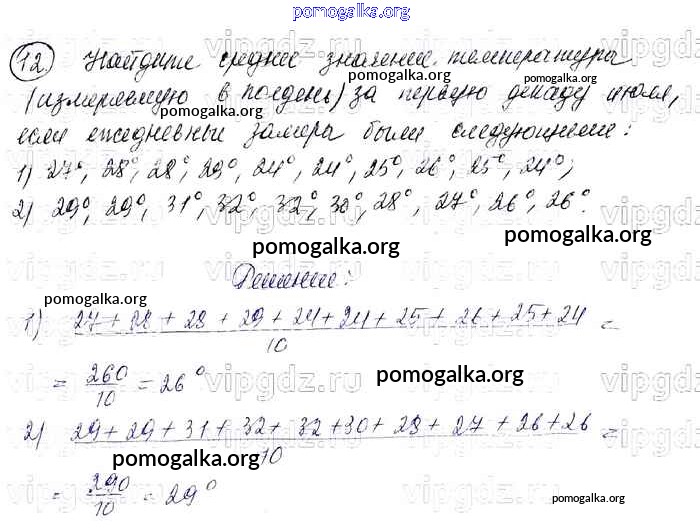 pomogalka.org
12. Найдите среднее значение температуры
(измеряемую в полдень) за первую декаду июля,
если ежедневные замеры были следующими:
1) 27°, 28°, 28°, 29°, 24°, 24°, 25°, 26°, 25°, 24°;
2) 29°, 29°, 31°, 32°, 32°, 30°, 28°, 27°, 26°, 26°.
pomogalka.org
pomogalka.org
Решение:
pomogalka.org
1) 27 + 28 + 28 + 29 + 24 + 24 + 25 + 26 + 25 + 24 =
10
= 260/10 = 26°
pomogalka.org
2) 29 + 29 + 31 + 32 + 32 + 30 + 28 + 27 + 26 + 26 =
10
pomogalka.org
= 290/10 = 29°
pomogalka.org